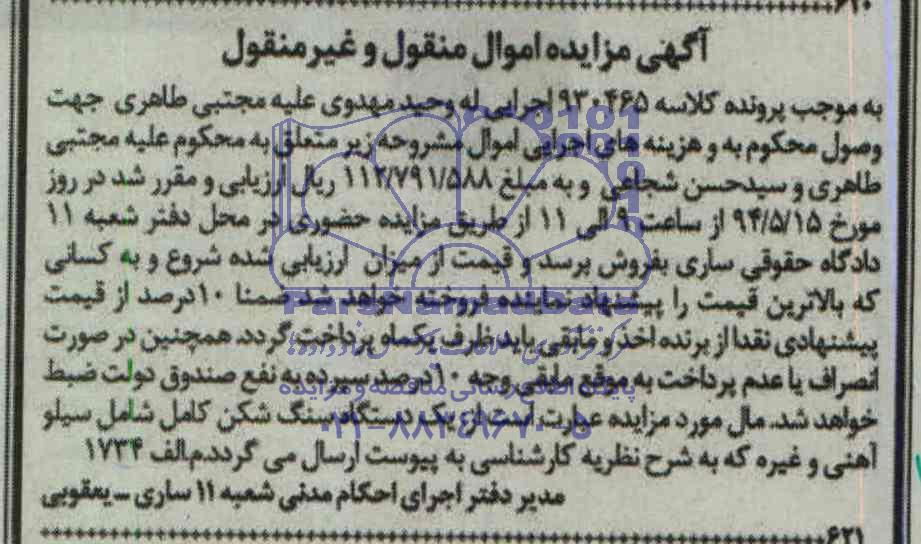 ۶۲۰
آگهی مزایده اموال منقول و غیرمنقول
به موجب پرونده کلاسه ۹۳۰۴۶۵ اجرایی له وحید مهدوی علیه مجتبی طاهری جهت
وصول محکوم به و هزینه های اجرایی اموال مشروحه زیر متعلق به محکوم علیه مجتبی
طاهری و سیدحسن شجاعی و به مبلغ ۱۱۲/۷۹۱/۵۸۸ ریال ارزیابی و مقرر شد در روز
مورخ ۹۴/۵/۱۵ از ساعت ۹ الی ۱۱ از طریق مزایده حضوری در محل دفتر شعبه ۱۱
دادگاه حقوقی ساری بفروش برسد و قیمت از میزان ارزیابی شده شروع و به کسانی
که بالاترین قیمت را پیشنهاد نماینده فروخته خواهد شد ضمنا ۱۰درصد از قیمت
پیشنهادی نقدا از برنده اخذ و مابقی باید ظرف یکماه پرداخت گردد. همچنین در صورت
انصراف یا عدم پرداخت به موقع مابقی وجه ۱۰درصد سپرده به نفع صندوق دولت ضبط
خواهد شد. مال مورد مزایده عبارت است از یک دستگاه سنگ شکن کامل شامل سیلو
آهنی و غیره که به شرح نظریه کارشناسی به پیوست ارسال می گردد.م.الف ۱۷۳۴
مدیر دفتر اجرای احکام مدنی شعبه ۱۱ ساری – یعقوبی
۶۲۱
ParsNamadData
۰۲۱-۸۸۳۴۹۶۷۰-۵